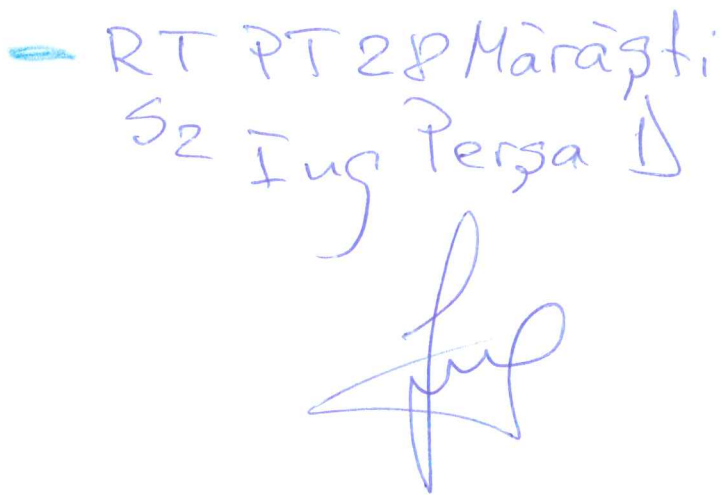 — RT PT 28 Mărăști
S2 Ing Perșa D